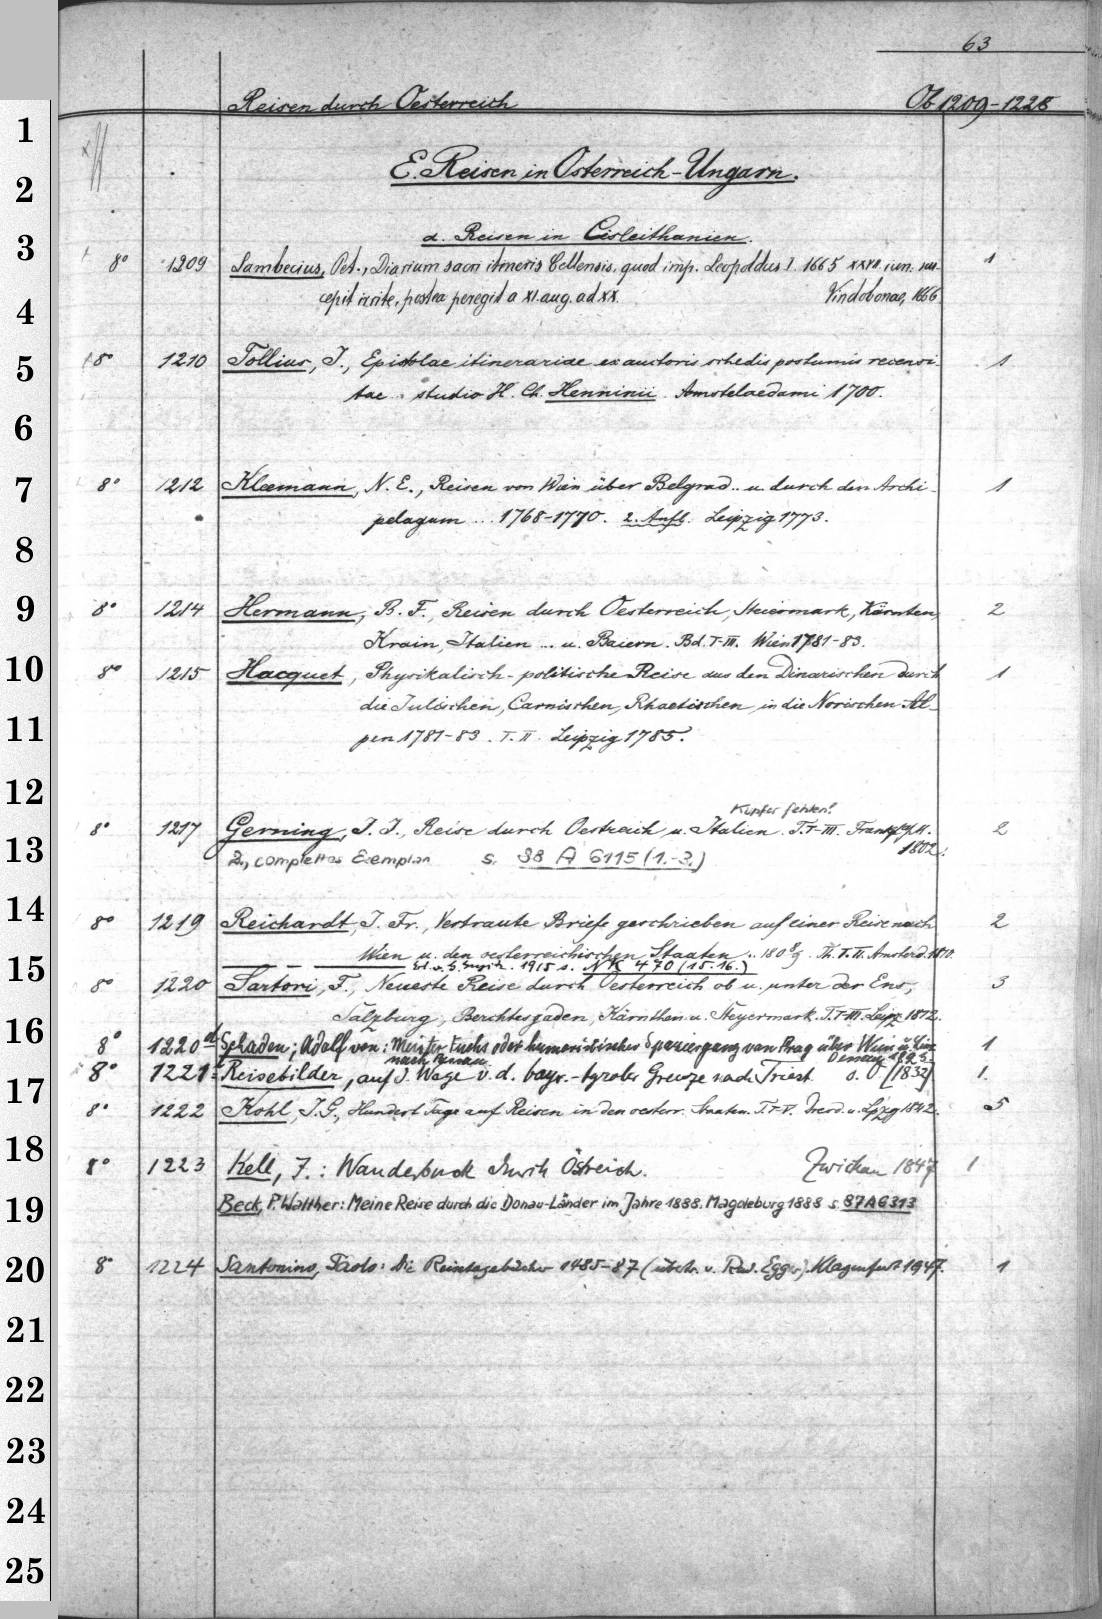 63
Reisen durch Oesterreich Ob 1209-1228
1
2
E. Reisen in Österreich-Ungarn.
3
a. Reisen in Cisleithanien.
8° 1209 Lambecius, Pet., Diarium sacri itineris Cellensis, quod imp. Leopoldus I. 1665 XXVII iun. sus-
cepit irrite, postea peregit a XI. aug. ad XX. Vindobonae, 1666
4
5
8° 1210 Tollius, J., Epistolae itinerariae ex auctoris schedis postumis recensi- 1
tae .. studio H. Ch. Henninii. Amstelaedami 1700.
6
7
8° 1212 Kleemann, N. E., Reisen von Wien über Belgrad .. u. durch den Archi- 1
pelagum ... 1768-1770. 2. Aufl. Leipzig 1773.
8
9
8° 1214 Hermann, B. F., Reisen durch Oesterreich, Steiermark, Kärnten, 2
Krain, Italien ... u. Baiern. Bd. I-III. Wien 1781-83.
10
8° 1215 Hacquet, Physikalisch-politische Reise aus den Dinarischen durch 1
die Julischen, Carnischen, Rhaetischen in die Norischen Al-
11
pen 1781-83. I. II. Leipzig 1785.
12
Kupfer fehlen!
8° 1217 Gerning, J. J., Reise durch Oestreich u. Italien. T. I-III. Frankf. a/M. 2
1802.
13
2., complettes Exemplar s. 38 A 6115 (1.-3.)
14
8° 1219 Reichardt, J. Fr., Vertraute Briefe geschrieben auf einer Reise nach 2
Wien u. den oesterreichischen Staaten .. 1808/9. Th. I. II. Amsterd. 1810.
15
1915 s. NK 470 (15.16.)
8° 1220 Sartori, F., Neueste Reise durch Oesterreich ob u. unter der Ens, 3
Salzburg, Berchtesgaden, Kärnthen u. Steyermark. T. I-III. Leipz 1812.
16
8° 1220a Schaden, Adolf von: Meister Fuchs oder humoristischer Spaziergang von Prag über Wien u. Linz 1
nach Passau. Dessau 1823.
17
8° 1221 Reisebilder, auf d. Wege v. d. bayr.-tyroler Grenze nach Triest o. O. [1832] 1.
8° 1222 Kohl, J. G., Hundert Tage auf Reisen in den oesterr. Staaten. T. I-V. Dresd. u. Lpzg 1842. 5
18
8° 1223 Kell, J.: Wanderbuch durch Östreich. Zwickau 1847 1
19
Beck, P. Walther: Meine Reise durch die Donau-Länder im Jahre 1888. Magdeburg 1888 s. 87 A 6313
20
8° 1224 Santonino, Paolo: Die Reisetagebücher 1485-87 (übstr. v. Rud. Egger). Klagenfurt 1947. 1
21
22
23
24
25